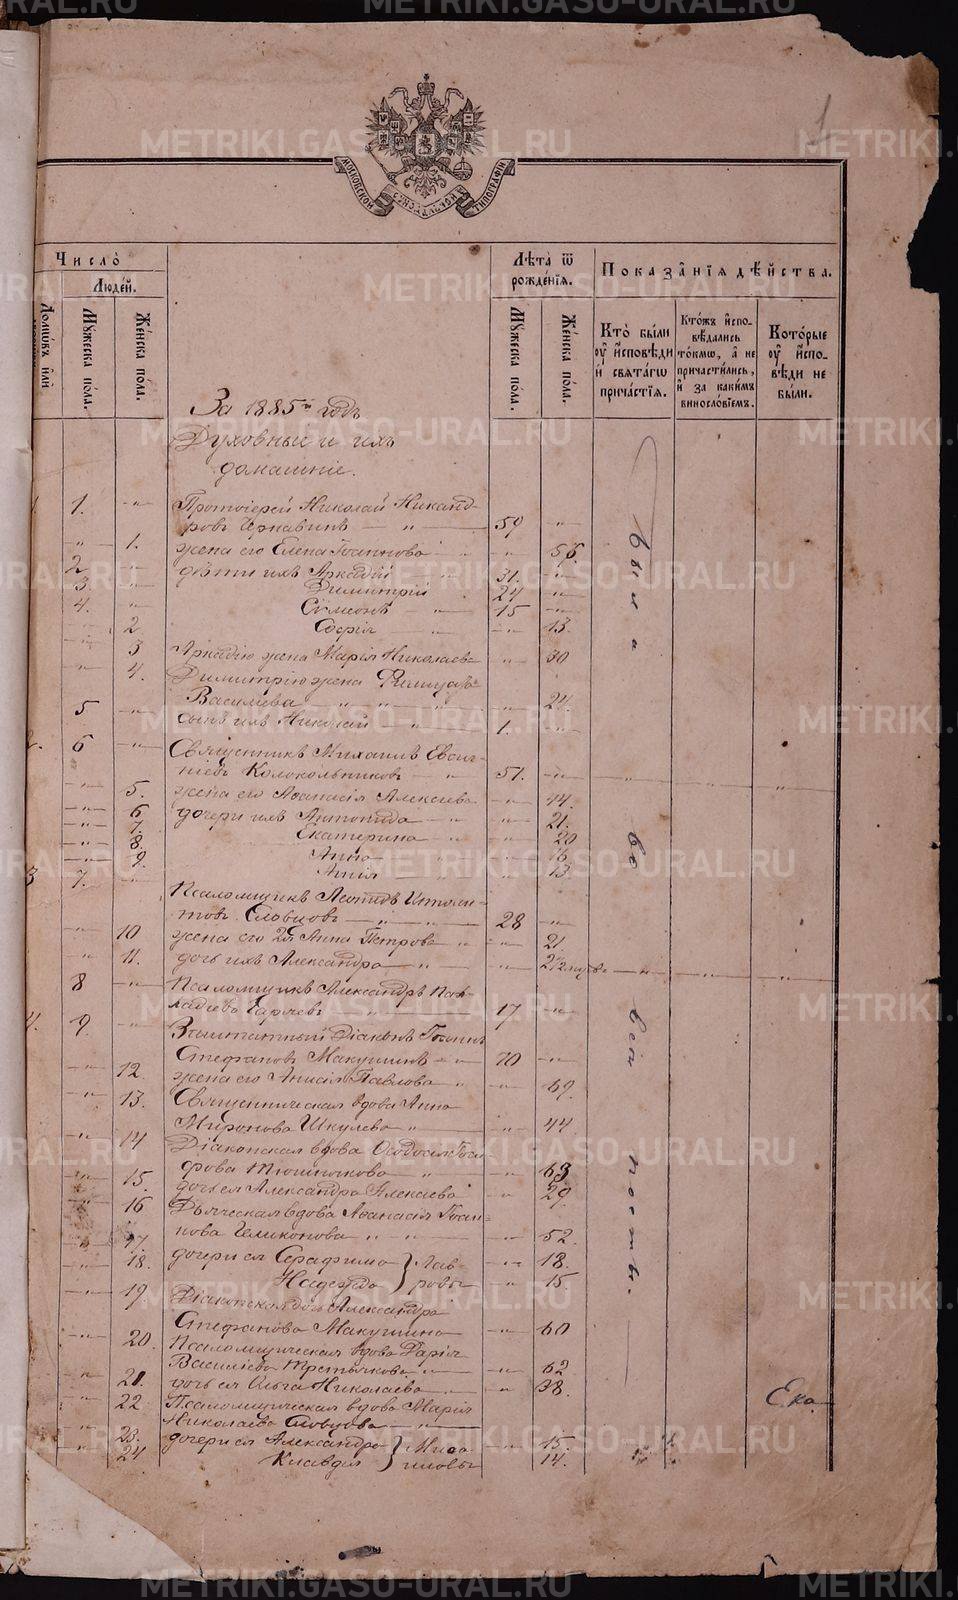 1
МОСКОВСКОЙ СѴНОДАЛЬНОЙ ТИПОГРАФІИ
Число̀
Людей.
Мꙋжеска пола.
Же́нска пола.
Лѣ́та ѿ рожде́нїѧ.
Мꙋжеска пола.
Же́нска пола.
Показа́нїѧ дѣ́йства.
Кто̀ бы́ли ᲂу҆ и҆сповѣди и҆ свѧта́гѡ прича́стїѧ.
Кто́жъ и҆спо-
вѣдались
то́кмѡ, а҆ не
причасти́лись,
и҆ за каки́мъ
винослові́емъ.
Кото́рые
ᲂу҆ и҆спо-
вѣди не
бы́ли.
За 1885й годъ
Духовные и ихъ
домашніе.
1. 1. -"- Протоіерей Николай Никанд-
ровъ Чернавинъ — " — 59 -"-
-"- 1. жена его Елена Іоаннова " -"- 56.
2 -"- дѣти ихъ Аркадій " 31. -"-
3. -"- Димитрій 24 -"-
4. -"- Сѵмеонъ -"- 15 -"-
-"- 2. Софія -"- -"- 13.
-"- 3 Аркадію жена Марія Николаева -"- 30
-"- 4. Димитрію жена
Васильева " " " 24
5 -"- сынъ ихъ Николай -"- 1. -"-
2. 6 -"- Священникъ Михаилъ Евсиг-
ніевъ Колокольниковъ -"- 51. -"-
-"- 5. жена его Аѳанасія Алексѣева -"- 44.
-"- 6 дочери ихъ Антонида -"- -"- 21.
-"- 7. Екатерина " -"- 20
-"- 8. Анна -"- 16
-"- 9. Агнія -"- 13.
3 7. -"- Псаломщикъ Леонидъ Ипполи-
товъ Словцовъ — " — 28 -"-
-"- 10 жена его 2я Анна Петрова " -"- 21
-"- 11. дочь ихъ Александра — " -"-
8 -"- Псаломщикъ Александръ Пал-
ладіевъ Гаряевъ " 17 -"-
4. 9 -"- Заштатный Діаконъ Іоаннъ
Стефановъ Макушинъ -"- 70 -"-
-"- 12. жена его Анисія Павлова " -"- 69.
-"- 13. Священническая вдова Анна
Миронова Шкулева " -"- 44
-"- 14 Діаконская вдова Ѳеодосія
Тюшнякова " -"- 63
-"- 15. дочь ея Александра Алексѣева -"- 29.
-"- 16 Дьяческая вдова Аѳанасія Іоан-
нова Геликонова " " -"- 52.
17 дочери ея Серафима } Лав- -"- 18.
-"- 18. Надежда } ровы " 15.
-"- 19. Діаконская дочь Александра
Стефанова Макушина -"- 60
-"- 20. Псаломщическая вдова Дарія
Васильева Третьякова " -"- 62
-"- 21 дочь ея Ольга Николаева -"- 38.
-"- 22 Псаломщическая вдова Марія
Николаева Словцова — " —
-"- 23. дочери ея Александра } Миха- -"- 15.
-"- 24 Клавдія } иловы -"- 14.
были во весь постъ.
Ека
METRIKI.GASO-URAL.RU